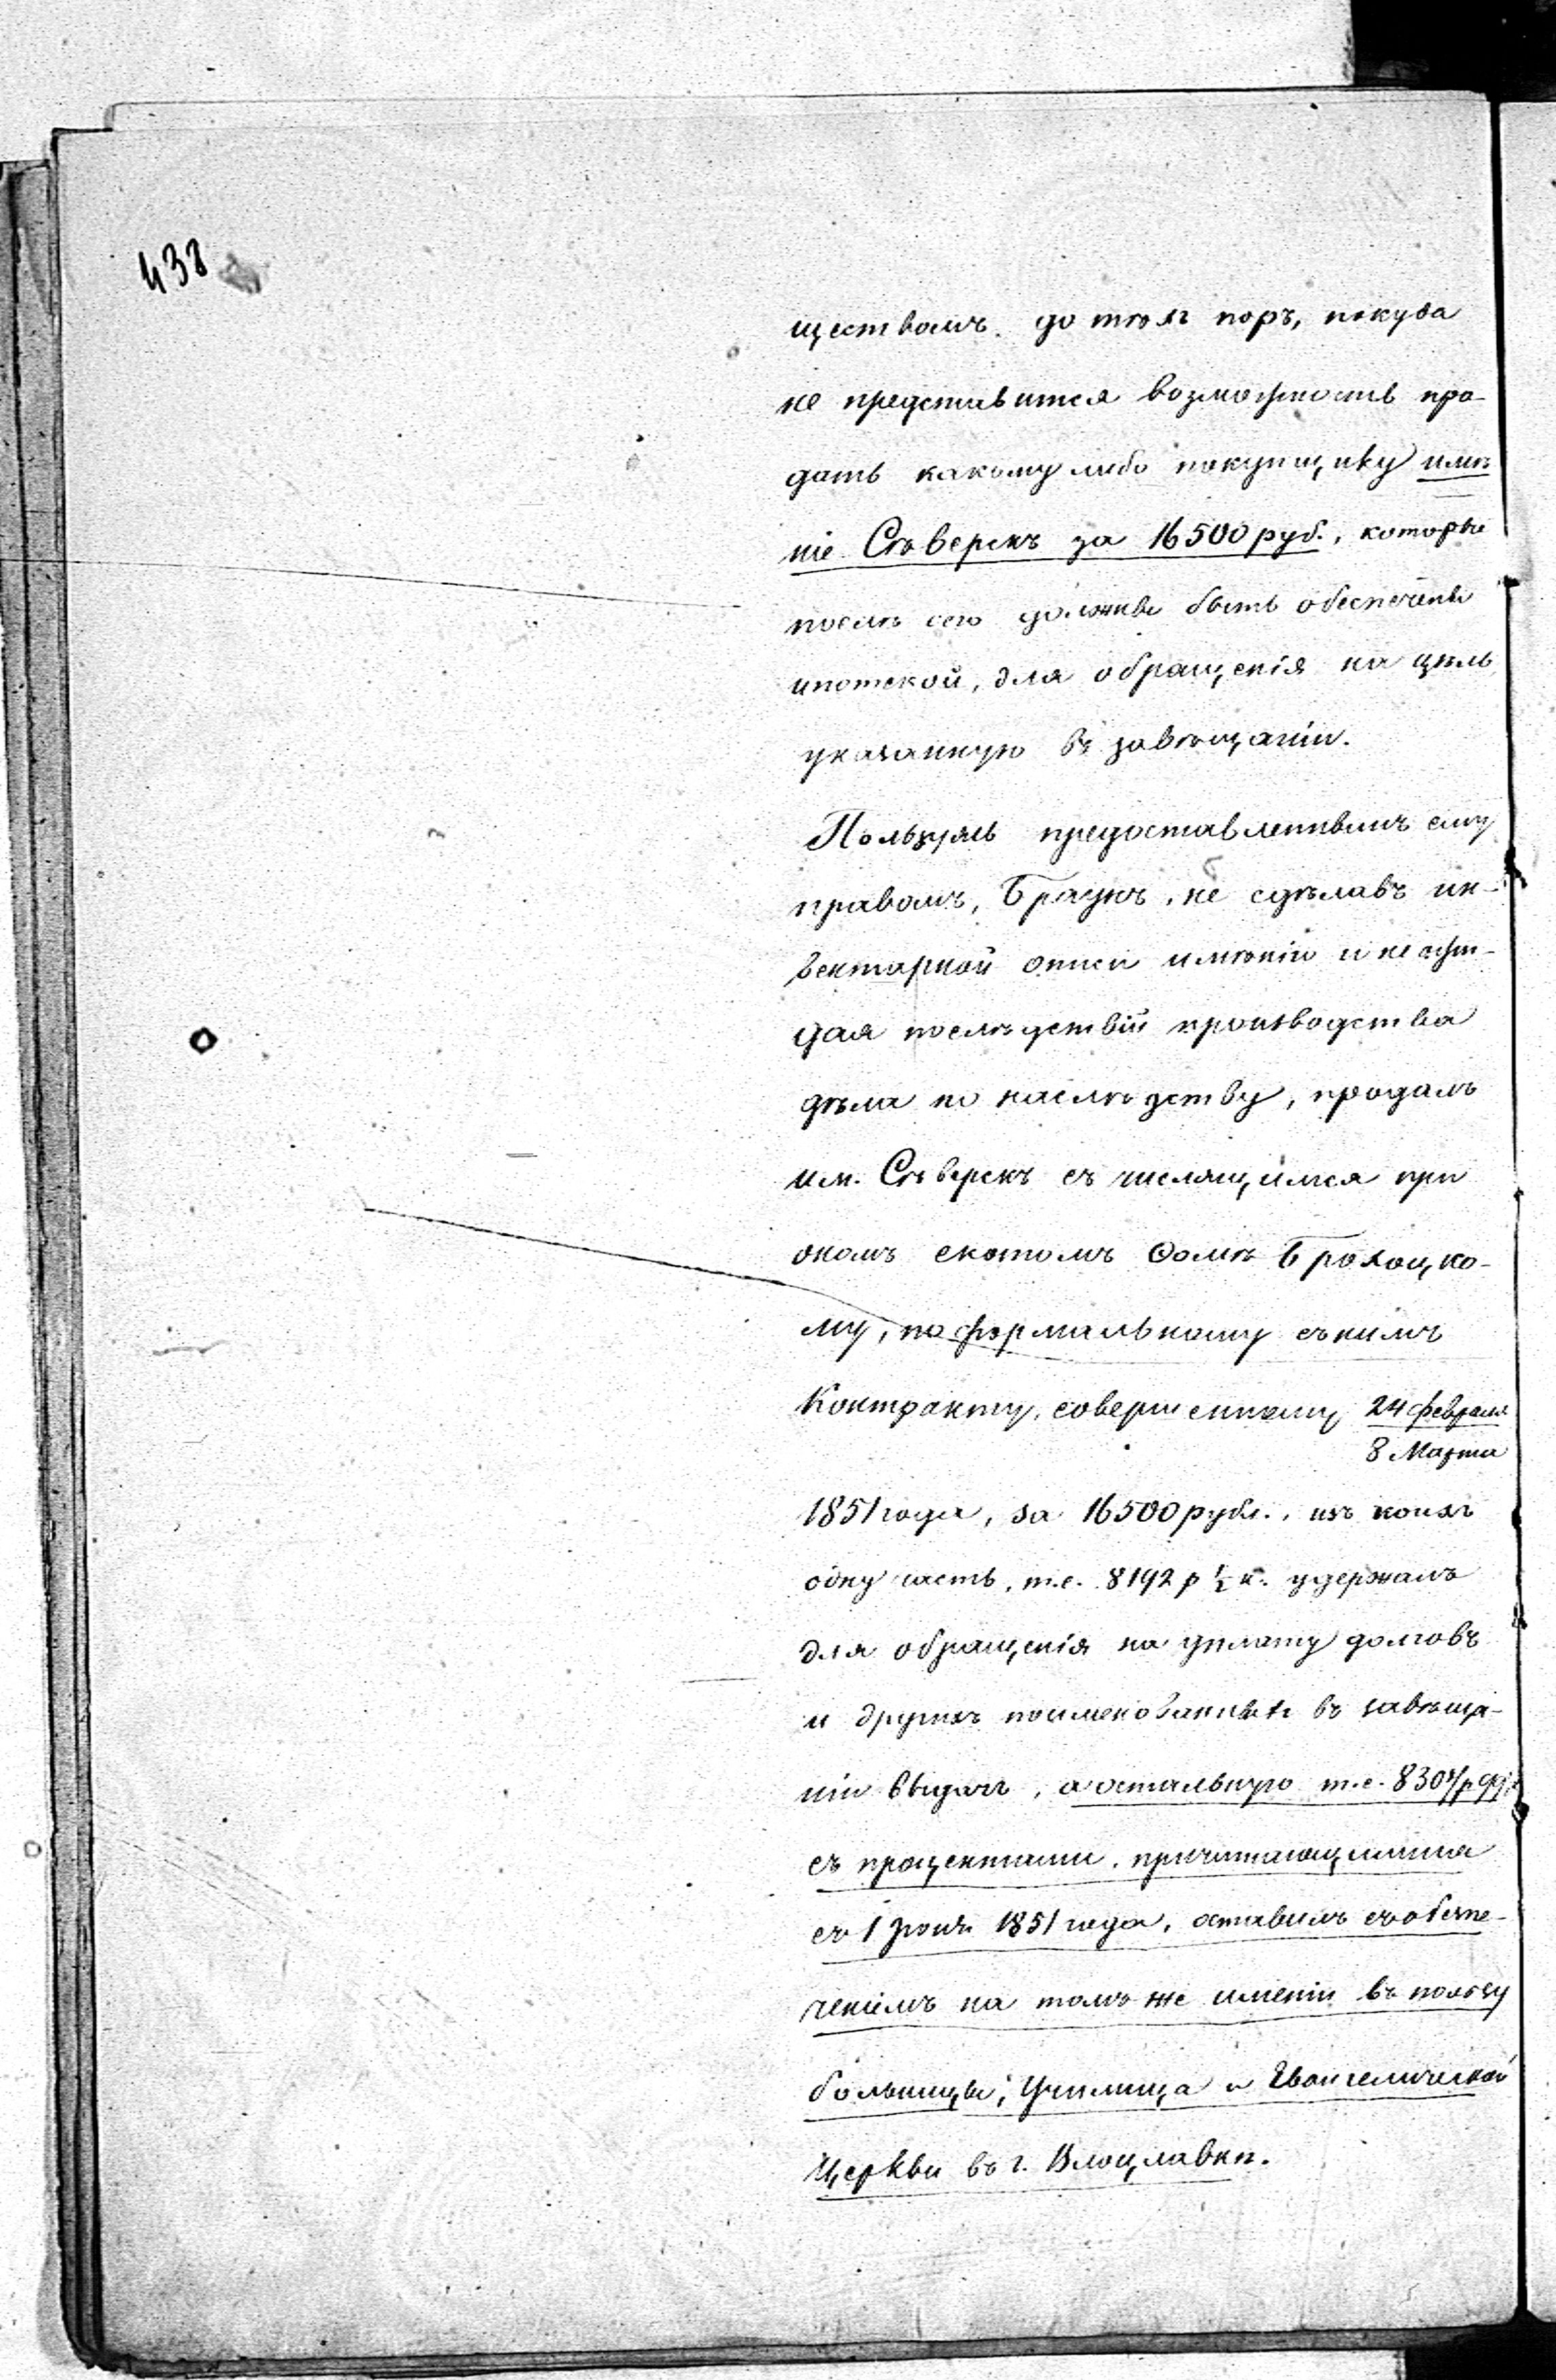 438
ществомъ до тѣхъ поръ, покуда
не представится возможность про-
дать какому либо покупщику имѣ
ніе Сѣверскъ за 16500 руб., которые
послѣ сего должны быть обеспечены
ипотекой, для обращенія на цѣль
указанную въ завѣщаніи.
Пользуясь предоставленнымъ ему
правомъ, Браунъ, не сдѣлавъ ин-
вентарной описи имѣнію и не ожи-
дая послѣдствій производства
дѣла по наслѣдству, продалъ
им. Сѣверскъ съ числящимся при
ономъ скотомъ Ѳомѣ Брохоцко-
му, по формальному съ нимъ
Контракту, совершенному 24 февраля
8 Марта
1851 года, за 16500 рубл., изъ коихъ
одну часть, т.е. 8192 р ½ к. удержалъ
для обращенія на уплату долговъ
и другихъ поименованныхъ въ завѣща-
ніи выдачъ, а остальную т.е. р
съ процентами, причитающимися
съ 1 1851 года, оставилъ съ обезпе-
ченіемъ на томъ же имѣніи въ пользу
больницы, Училища и Евангелической
Церкви въ г. Влоцлавкѣ.